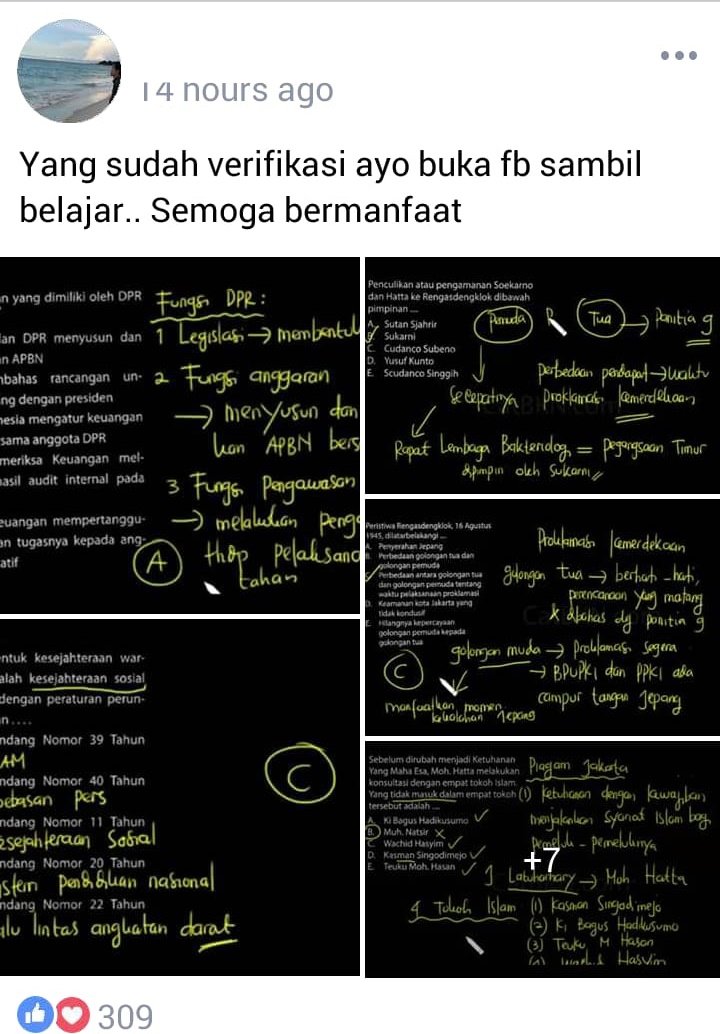 14 hours ago
Yang sudah verifikasi ayo buka fb sambil
belajar.. Semoga bermanfaat
n yang dimiliki oleh DPR
an DPR menyusun dan
n APBN
bahas rancangan un-
ng dengan presiden
esia mengatur keuangan
sama anggota DPR
meriksa Keuangan mel-
asil audit internal pada
euangan mempertanggu-
an tugasnya kepada ang-
atif
Fungsi DPR :
1 Legislasi → membentuk
2 Fungsi anggaran
→ menyusun dan
kan APBN bers
3 Fungsi Pengawasan
→ melakukan peng
thdp pelaksana
tahan
A
Penculikan atau pengamanan Soekarno
dan Hatta ke Rengasdengklok dibawah
pimpinan ...
A. Sutan Sjahrir
B. Sukarni
C. Cudanco Subeno
D. Yusuf Kunto
E. Scudanco Singgih
Pemuda
Tua → Panitia 9
perbedaan pendapat → waktu
secepatnya Proklamasi kemerdekaan
Rapat Lembaga Bakteriologi = pegangsaan Timur
dipimpin oleh Sukarni
Peristiwa Rengasdengklok, 16 Agustus
1945, dilatarbelakangi ...
A. Penyerahan Jepang
B. Perbedaan golongan tua dan
golongan pemuda
Perbedaan antara golongan tua
dan golongan pemuda tentang
waktu pelaksanaan proklamasi
D. Keamanan kota Jakarta yang
tidak kondusif
E. Hilangnya kepercayaan
golongan pemuda kepada
golongan tua
Proklamasi kemerdekaan
golongan tua → berhati-hati,
perencanaan yang matang
& dibahas dg panitia 9
golongan muda → Proklamasi segera
→ BPUPKI dan PPKI ada
campur tangan Jepang
C
manfaatkan momen
kekalahan Jepang
ntuk kesejahteraan war-
alah kesejahteraan sosial
dengan peraturan perun-
n....
ndang Nomor 39 Tahun
AM
ndang Nomor 40 Tahun
ebasan Pers
ndang Nomor 11 Tahun
esejahteraan Sosial
ndang Nomor 20 Tahun
stem pendidikan nasional
ndang Nomor 22 Tahun
alu lintas angkatan darat
C
Sebelum dirubah menjadi Ketuhanan
Yang Maha Esa, Moh. Hatta melakukan
konsultasi dengan empat tokoh Islam.
Yang tidak masuk dalam empat tokoh
tersebut adalah ...
A. Ki Bagus Hadikusumo
B. Muh. Natsir
C. Wachid Hasyim
D. Kasman Singodimejo
E. Teuku Moh. Hasan
Piagam Jakarta
(1) Ketuhanan dengan kewajiban
menjalankan syariat Islam bagi
pemeluk-pemeluknya
+7
Latuharhary → Moh Hatta
4 Tokoh Islam (1) Kasman Singodimejo
(2) Ki Bagus Hadikusumo
(3) Teuku M Hasan
(4) Wachid Hasyim
309